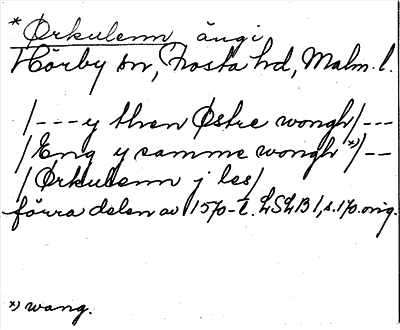 * Ørkulenn äng i
Hörby sn, Frosta hd, Malm. l.
/--- y then Østre wongh/---
/Eng y samme wongh *)/--
/Ørkulenn j les/
förra delen av 1570-t. LSLB 1, s. 170. orig.
*) wang.